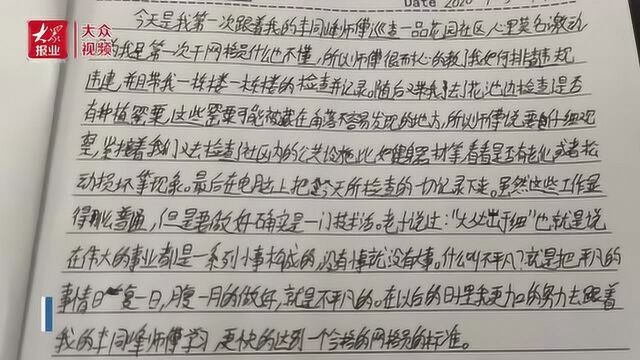 大众报业
大众视频
Date 2020
今天是我第一次跟着我的李同峰师傅巡查一品花园社区,心里莫名激动
的我是第一次干网格是什么也不懂,所以师傅很耐心的教了我如何排查违规
违建,并且带我一栋楼一栋楼的检查并记录。随后又带我去了花池边检查是否
有种植罂粟,这些罂粟可能被藏在角落不容易发现的地方,所以师傅说要自仔细观
察,紧接着我们又去检查了社区内的公共设施,比如健身器材等看看是否有老化,或者松
动损坏等现象。最后在电脑上把今天所检查的一切记录下来。虽然这些工作显
得那么普通,但是要做好它确实是一门技术活。老子说过:“大必出于细”也就是说
在伟大的事业都是一系列小事构成的,没有小事就没有大事。什么叫不平凡?就是把平凡的
事情日复一日,月复一月的做好,就是不平凡的。在以后的日子里我更加的努力去跟着
我的李同峰师傅学习,更快的达到一个合格的网格员的标准。